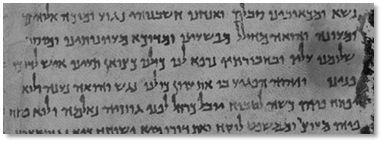 נשא ומכאובינו סבל ואנחנו חשבנוהו נגוע ומוכה אלוהים
ומעונה והואה מחולל מפשעינו ומדוכא מעוונותינו ומוסר
שלומנו עליו ובחבורתיו נרפא לנו כולנו כצואן תעינו איש לדרכו
פנינו ויהוה הפגיע בו את עוון כולנו נגש והואה נענה ולוא
פתח פיהו כשה לטבוח יובל כרחל לפני גוזזיה נאלמה ולוא פתח
פיהו מעוצר וממשפט לוקח ואת דורו מיא ישוחח כיא